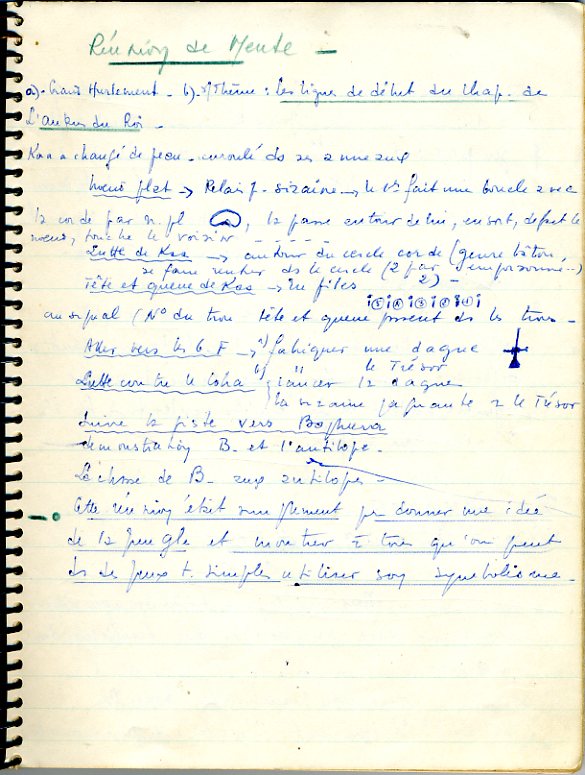 Réunion de Meute -
a). Grand Hurlement - b). Thème : Les lignes de début du Chap. de
L'Ankus du Roi -
Kaa a changé de peau - enroulé ds ses anneaux
Nœud plat → Relais p. sizaine → le 1er fait une boucle avec
la corde par n. pl , la passe autour de lui, en sort, défait le
nœud, touche le voisin
Lutte de Kaa → autour du cercle corde (genre bâton,
se faire rentrer ds le cercle (2 par 2) - empoisonné..)
Tête et queue de Kaa → En files
au signal (N° du trou tête et queue passent ds les trous -
Aller vers les G F → a) fabriquer une dague
le Trésor
Lutte contre le cobra b) lancer la dague
la sizaine gagnante a le Trésor
Suivre la piste vers Bagheera
démonstration B. et l'antilope.
La chasse de B. aux antilopes -
Cette réunion était simplement pr donner une idée
de la Jungle et montrer à tous qu'on peut
ds des Jeux t. simples utiliser son symbolisme -